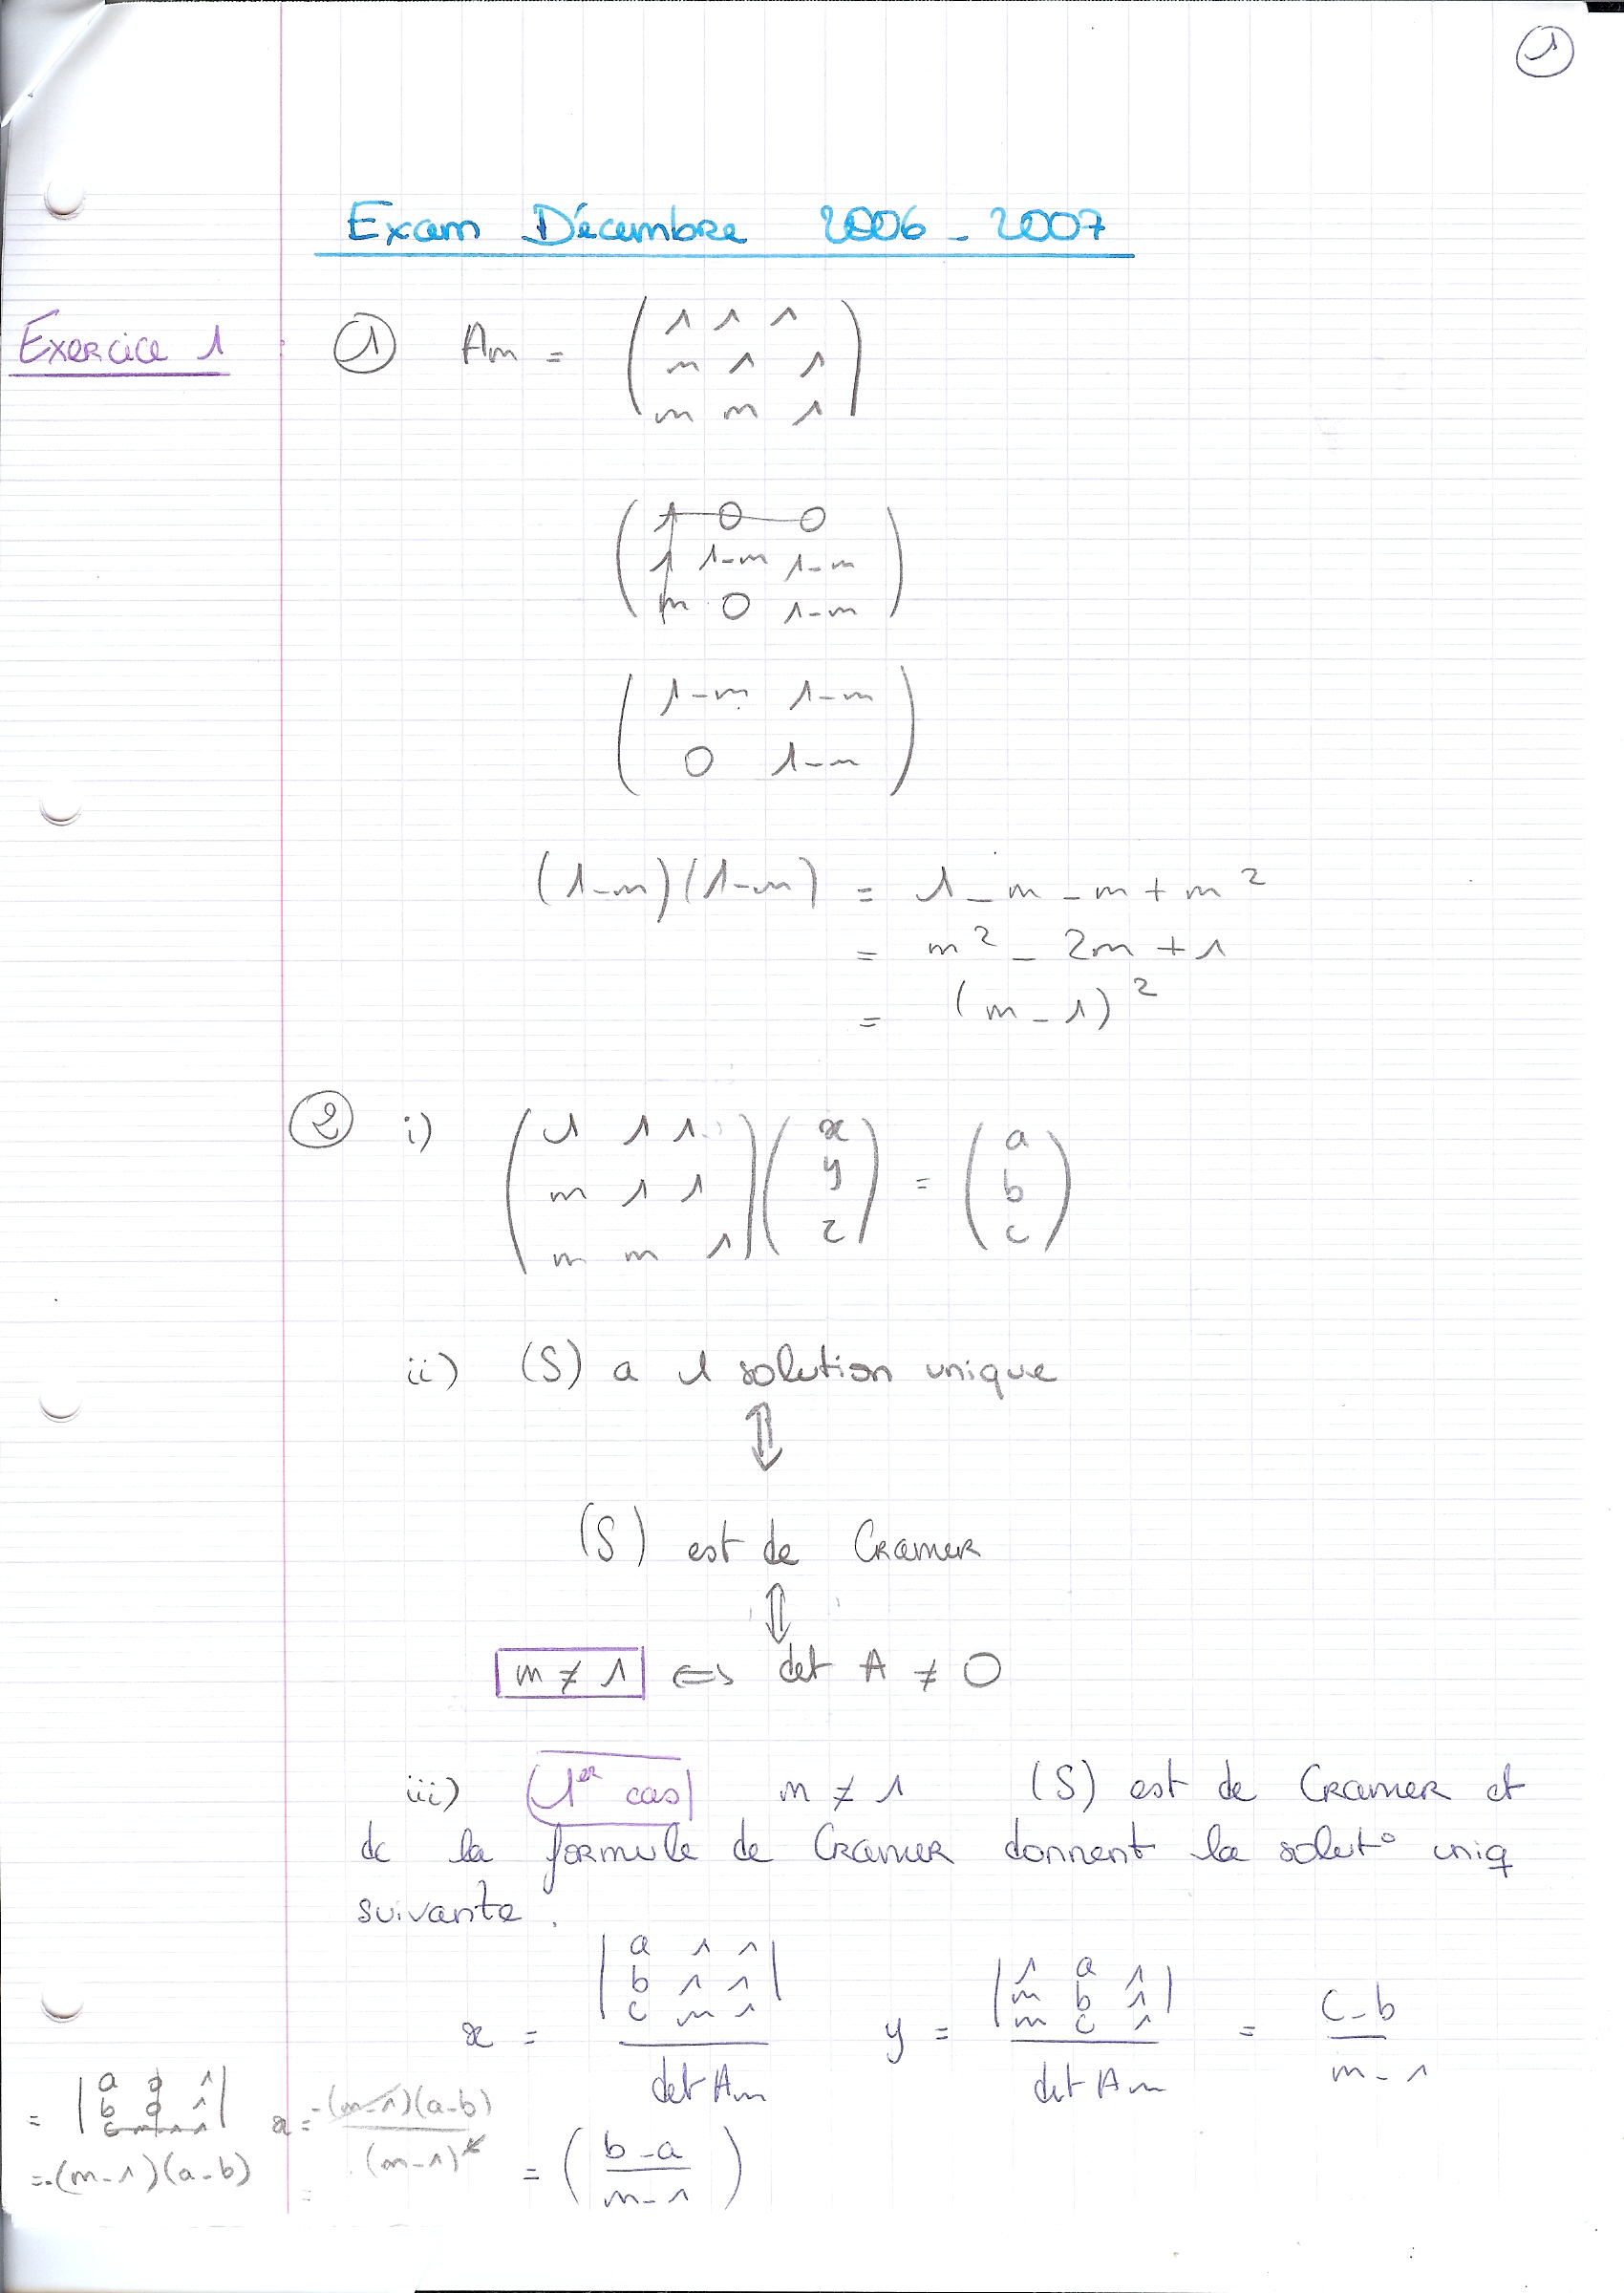 1
Exam Décembre 2006 - 2007
Exercice 1
① Am = ( 1 1 1
m 1 1
m m 1 )
( 1 0 0
1 1-m 1-m
m 0 1-m )
( 1-m 1-m
0 1-m )
(1-m)(1-m) = 1 - m - m + m²
= m² - 2m + 1
= (m - 1)²
② i) ( 1 1 1
m 1 1
m m 1 ) ( x
y
z ) = ( a
b
c )
ii) (S) a 1 solution unique
⇕
(S) est de Cramer
⇕
m ≠ 1 ⇔ det A ≠ 0
iii) 1er cas m ≠ 1 (S) est de Cramer et
dc la formule de Cramer donnent la solut° uniq
suivante.
x = | a 1 1
b 1 1
c m 1 | / det Am
y = | 1 a 1
m b 1
m c 1 | / det Am = c-b / m-1
= | a 0 1
b 0 1
c m-1 1 |
= -(m-1)(a-b)
x = -(m-1)(a-b) / (m-1)²
= ( b-a / m-1 )